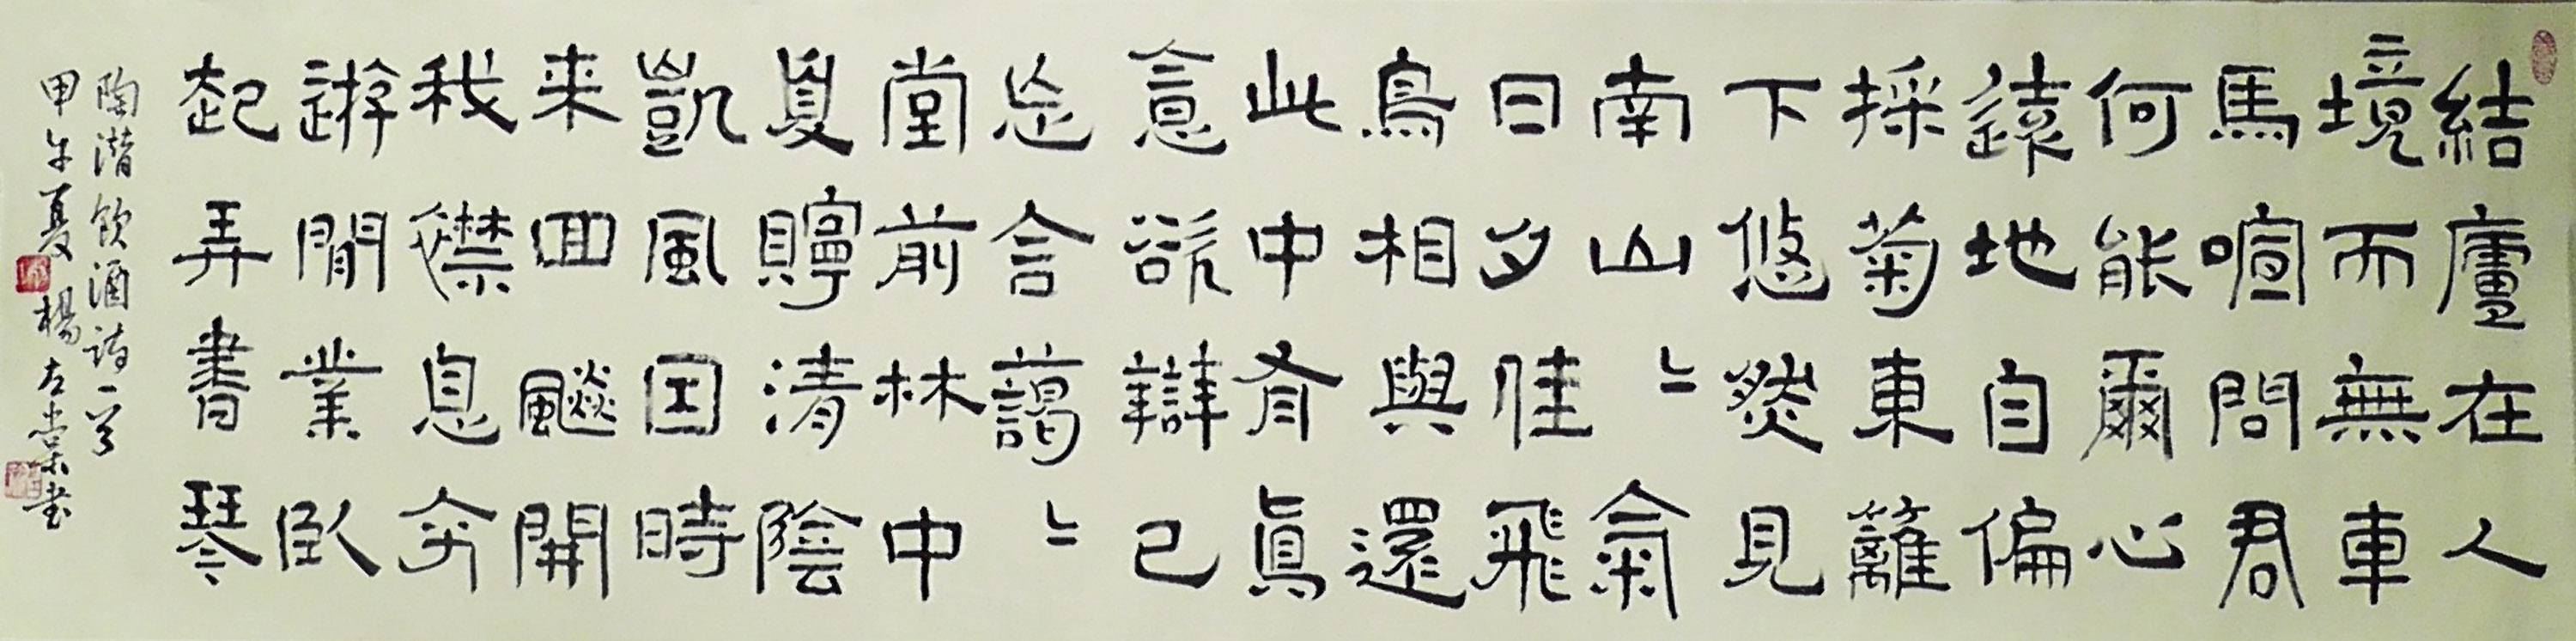 結廬在人
境而無車
馬喧問君
何能爾心
遠地自偏
採菊東籬
下悠然見
南山〻氣
日夕佳飛
鳥相與還
此中有眞
意欲辯已
忘言藹〻
堂前林中
夏貯清陰
凱風因時
来回飈開
我襟息交
遊閒業臥
起弄書琴
陶潜飲酒诗一首
甲午夏楊左棠书